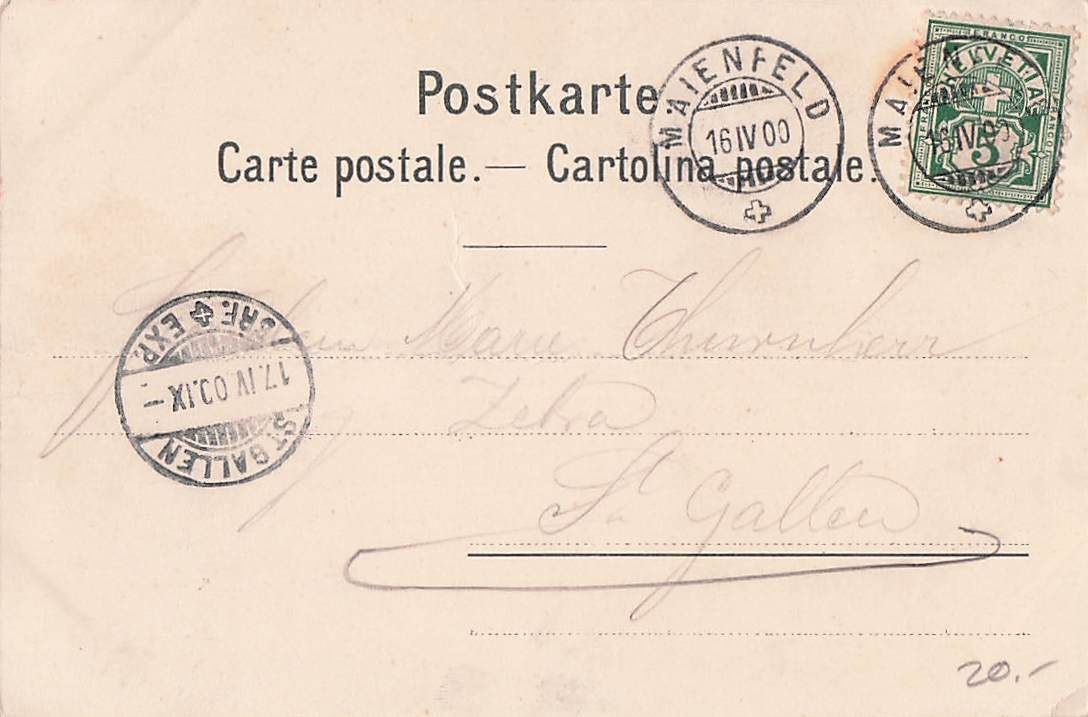 Postkarte
Carte postale. — Cartolina postale.
MAIENFELD
16 IV 00
MAIEN
16 IV 00
FRANCO
HELVETIA
5
BRF. EXP.
17. IV. 00. IX –
ST. GALLEN
Marie Thurnherr
Zebra
St Gallen
20.-